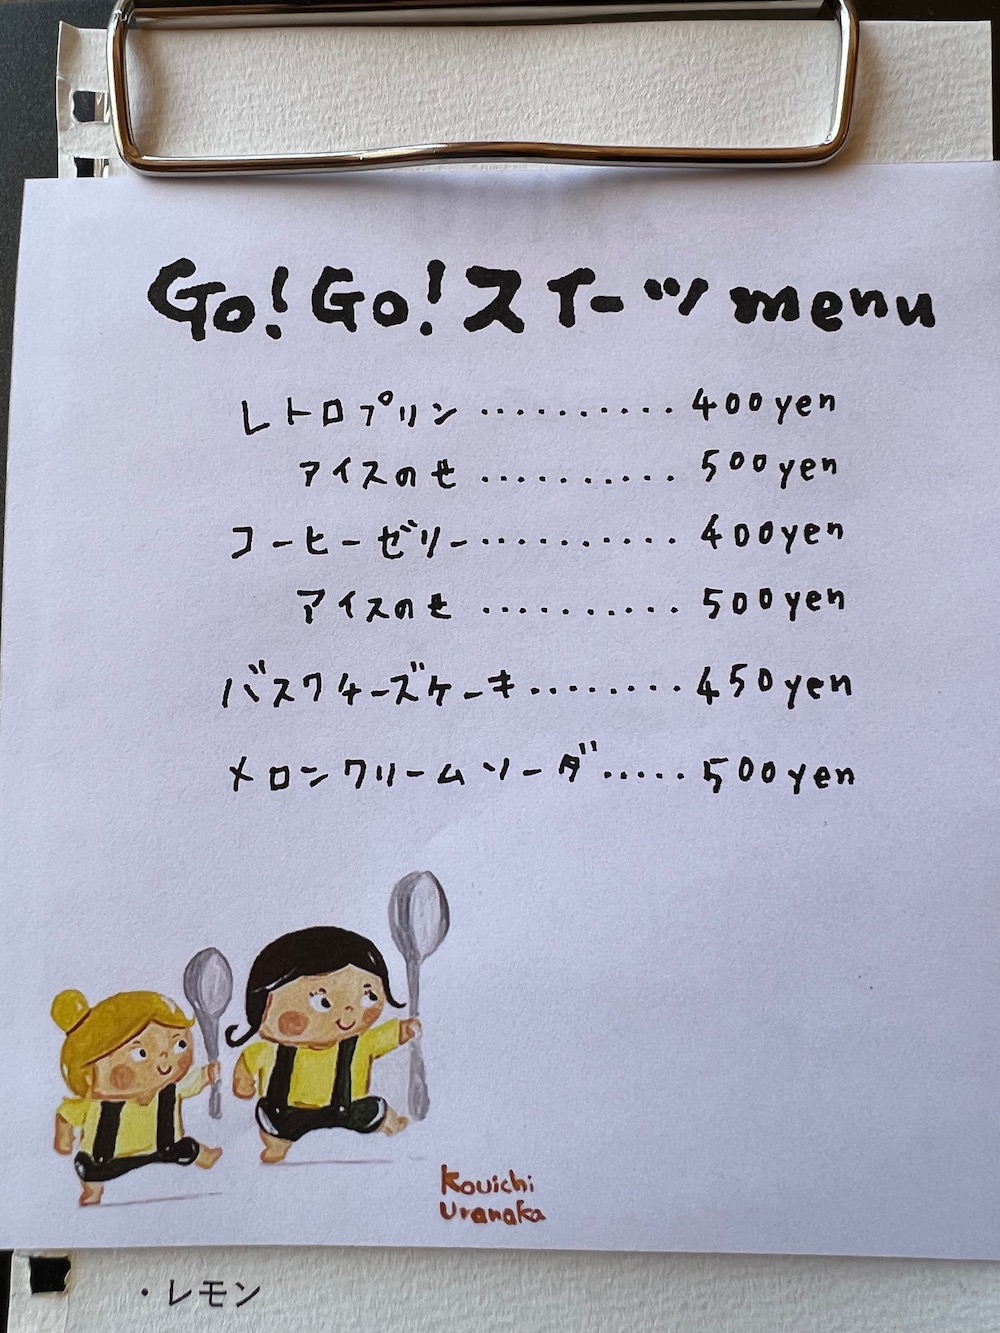 Go! Go! スイーツ menu
レトロプリン .......... 400yen
アイスのせ .......... 500yen
コーヒーゼリー .......... 400yen
アイスのせ .......... 500yen
バスクチーズケーキ ........ 450yen
メロンクリームソーダ ..... 500yen
Kouichi
Uranaka
・レモン